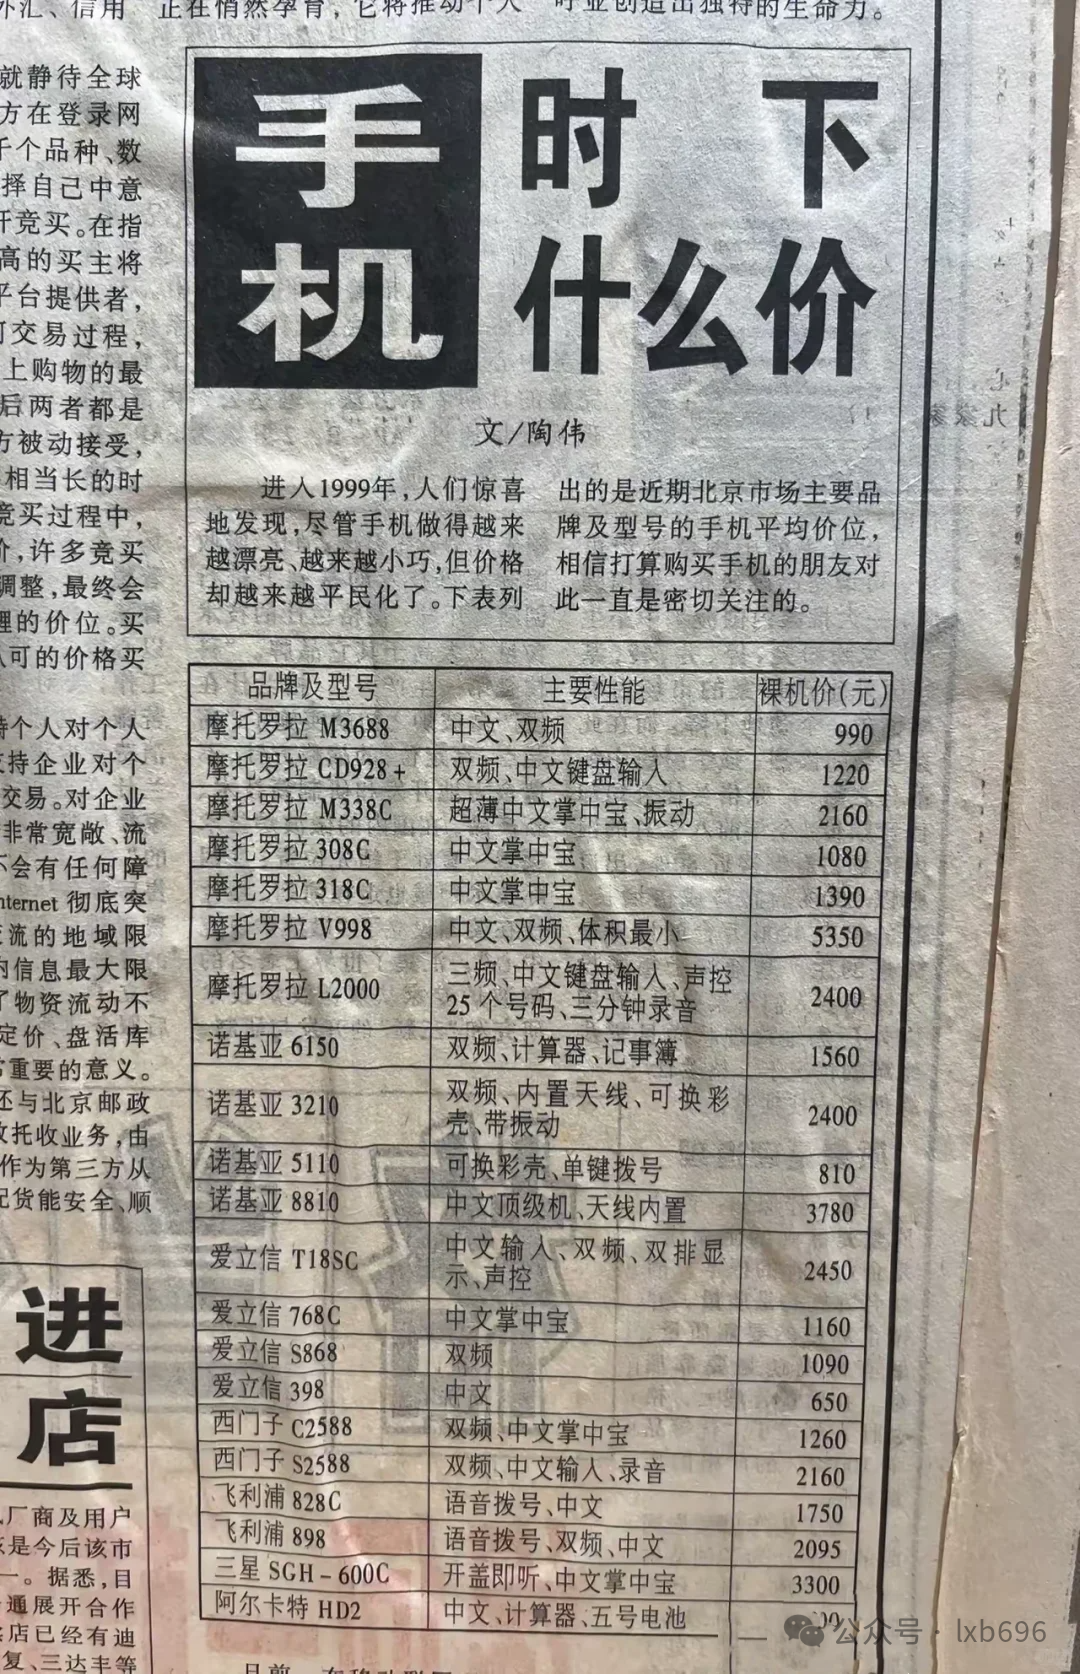 外汇、信用
正在悄然孕育，它将推动个人
呼业创造出独特的生命力。
就静待全球
方在登录网
千个品种、数
择自己中意
开竞买。在指
高的买主将
平台提供者，
交易过程，
上购物的最
后两者都是
方被动接受，
相当长的时
竞买过程中，
价，许多竞买
调整，最终会
理的价位。买
认可的价格买
持个人对个人
支持企业对个
交易。对企业
非常宽敞、流
不会有任何障
nternet 彻底突
流的地域限
内信息最大限
了物资流动不
定价、盘活库
常重要的意义。
还与北京邮政
收托收业务，由
作为第三方从
配货能安全、顺
进
店
厂商及用户
该是今后该市
一。据悉，目
通展开合作
店已经有迪
复、三达丰等
手机
时下
什么价
文/陶伟
进入1999年，人们惊喜
地发现，尽管手机做得越来
越漂亮、越来越小巧，但价格
却越来越平民化了。下表列
出的是近期北京市场主要品
牌及型号的手机平均价位，
相信打算购买手机的朋友对
此一直是密切关注的。
品牌及型号 主要性能 裸机价(元)
摩托罗拉 M3688 中文、双频 990
摩托罗拉 CD928+ 双频、中文键盘输入 1220
摩托罗拉 M338C 超薄中文掌中宝、振动 2160
摩托罗拉 308C 中文掌中宝 1080
摩托罗拉 318C 中文掌中宝 1390
摩托罗拉 V998 中文、双频、体积最小 5350
摩托罗拉 L2000 三频、中文键盘输入、声控
25个号码、三分钟录音 2400
诺基亚 6150 双频、计算器、记事簿 1560
诺基亚 3210 双频、内置天线、可换彩
壳、带振动 2400
诺基亚 5110 可换彩壳、单键拨号 810
诺基亚 8810 中文顶级机、天线内置 3780
爱立信 T18SC 中文输入、双频、双排显
示、声控 2450
爱立信 768C 中文掌中宝 1160
爱立信 S868 双频 1090
爱立信 398 中文 650
西门子 C2588 双频、中文掌中宝 1260
西门子 S2588 双频、中文输入、录音 2160
飞利浦 828C 语音拨号、中文 1750
飞利浦 898 语音拨号、双频、中文 2095
三星 SGH-600C 开盖即听、中文掌中宝 3300
阿尔卡特 HD2 中文、计算器、五号电池
公众号·lxb696